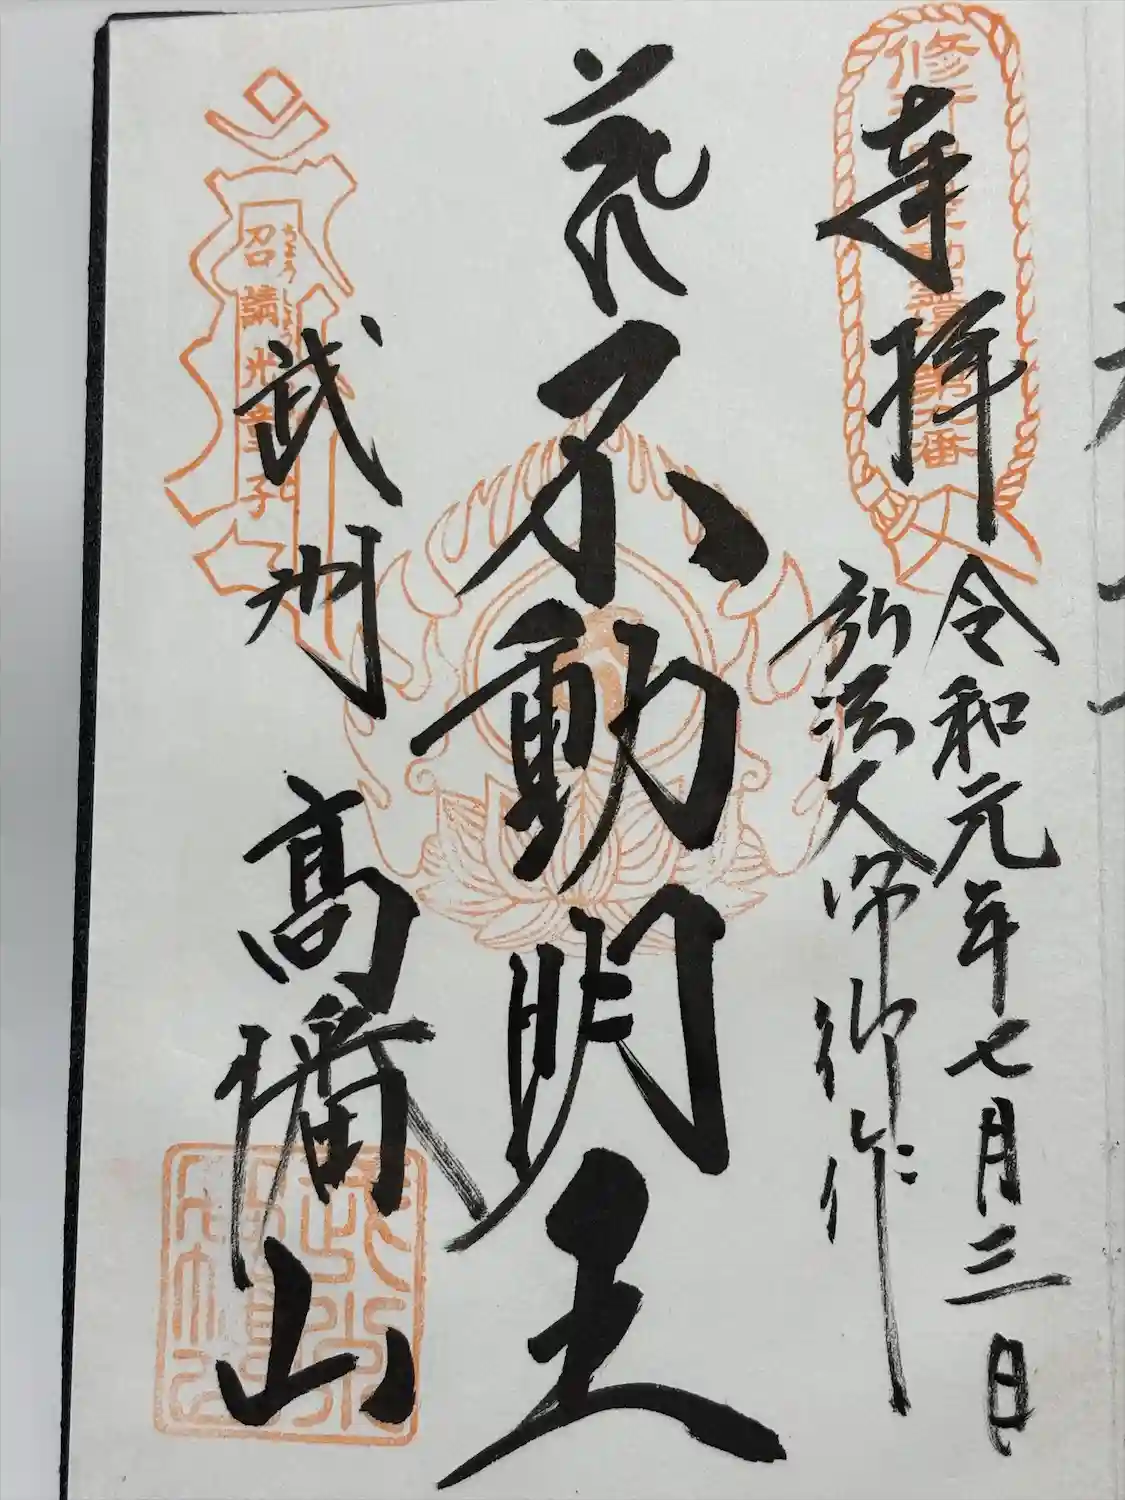 奉拝
令和元年七月三日
弘法大師御作
不動明王
召請光童子
武州
高幡山